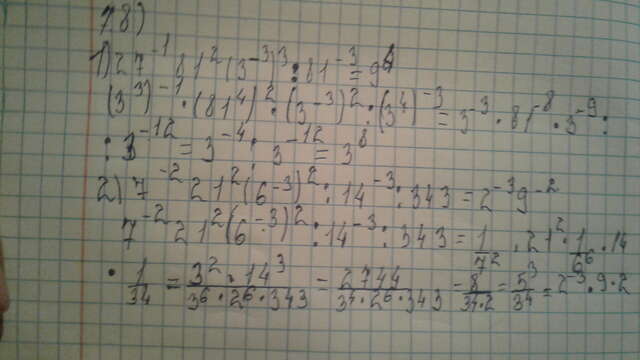 78)
1) 27^-1 81^2 (3^-3)^3 : 81^-3 = 9^4
(3^3)^-1 · (81^4)^2 · (3^-3)^2 : (3^4)^-3 = 3^-3 · 81^8 · 3^-9 :
: 3^-12 = 3^-4 : 3^-12 = 3^8
2) 7^-2 21^2 (6^-3)^2 : 14^-3 : 343 = 2^-3 9^-2
7^-2 21^2 (6^-3)^2 : 14^-3 : 343 = 1/7^2 · 21^2 · 1/6^6 · 14
· 1/34 = 3^2 · 14^3 / 3^6 · 2^6 · 343 = 2744 / 3^4 · 2^6 · 343 = 8 / 34 · 2 = 5^3 / 3^4 = 2^-3 · 9 · 2